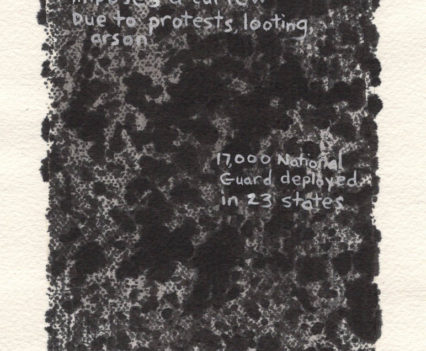 imposed a curfew
Due to protests, looting,
arson
17,000 National
Guard deployed
in 23 states